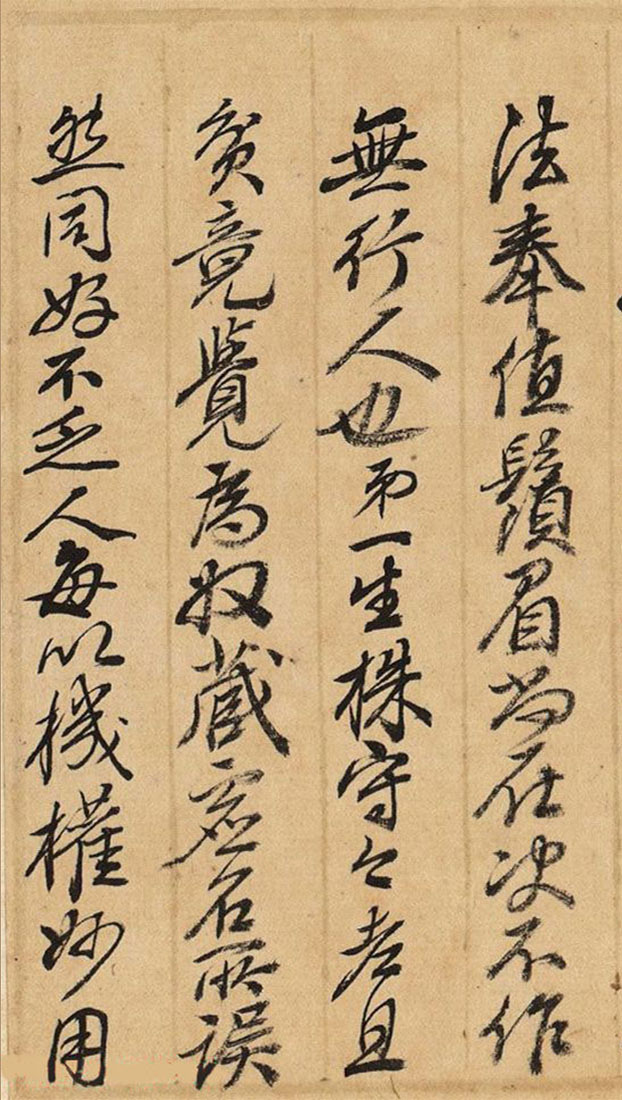 法奉值鬚眉尚在決不作
無行人也弟一生株守今老且
貧竟覺為收藏虛名所誤
然同好不乏人每以機權妙用